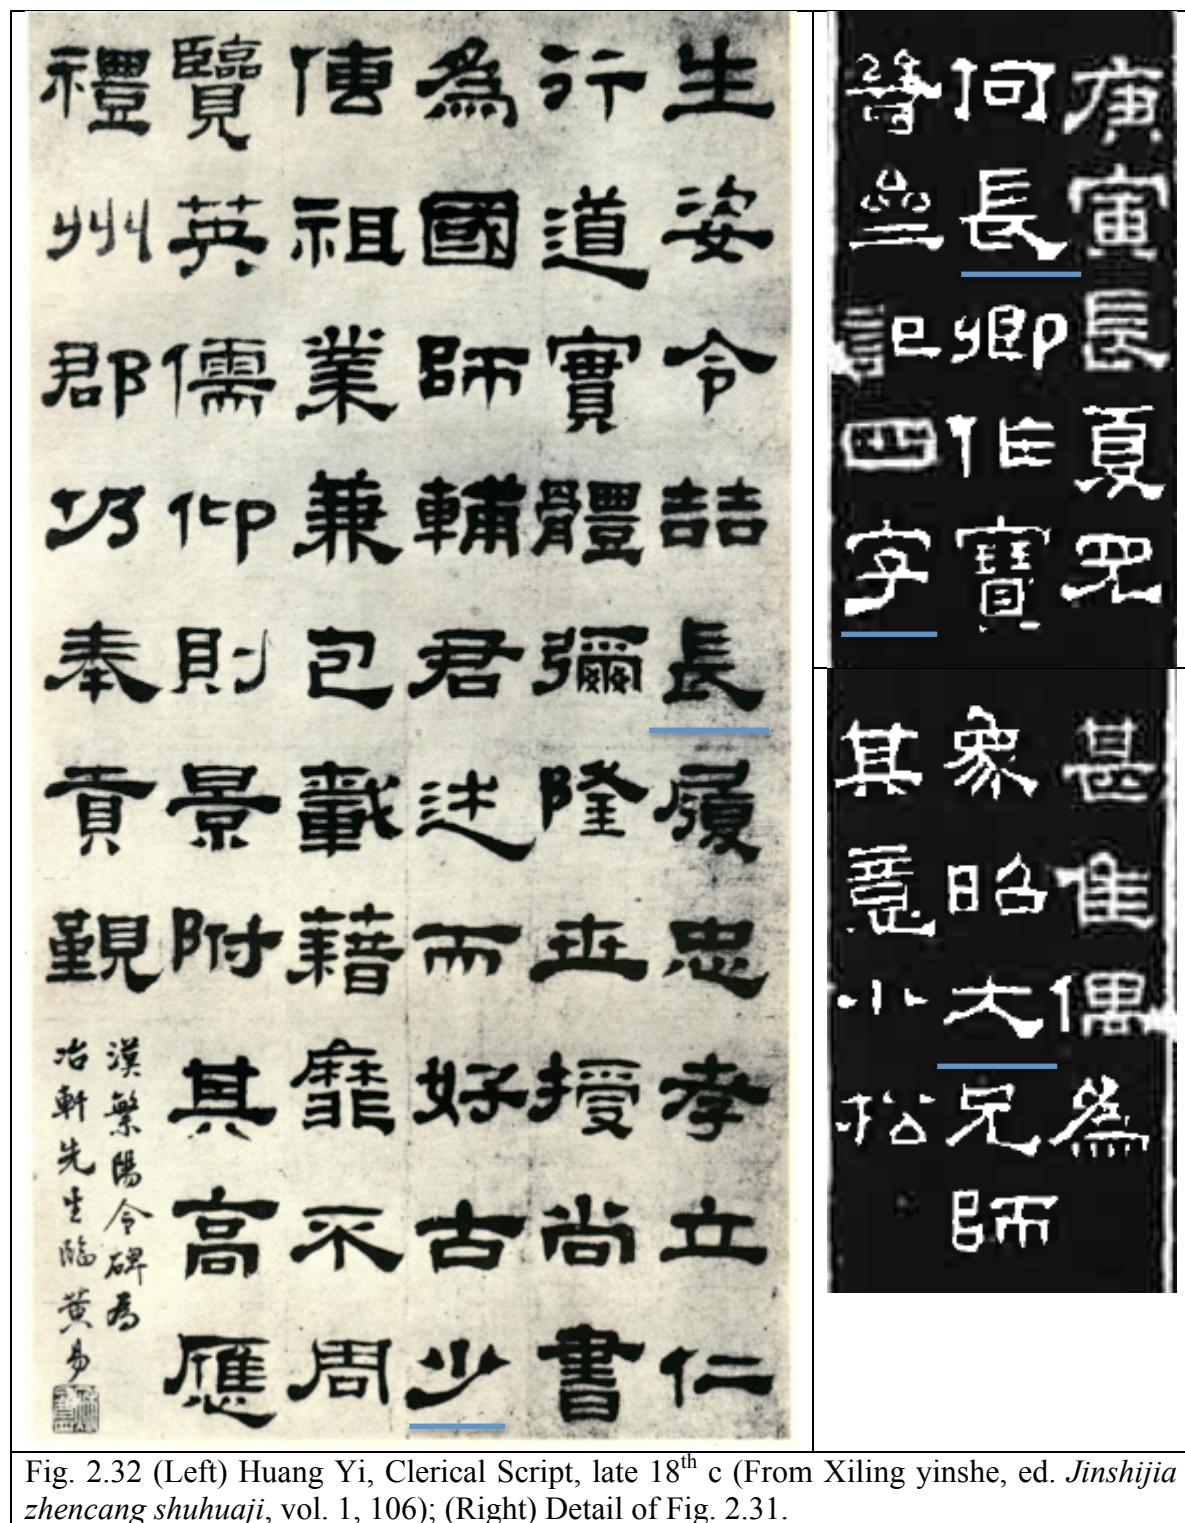 生姿令喆長履忠孝立仁
行道實體彌隆世授尚書
為國師輔君述而好古少
傳祖業兼包載藉靡不周
覽英儒仰則景附其高應
禮州郡仍奉貢覲
漢繁陽令碑為
冶軒先生臨黃易
庚寅長夏
何長卿作寶
記四字
甚佳偶為
象昭大兄師
其意小松
Fig. 2.32 (Left) Huang Yi, Clerical Script, late 18th c (From Xiling yinshe, ed. Jinshijia
zhencang shuhuaji, vol. 1, 106); (Right) Detail of Fig. 2.31.